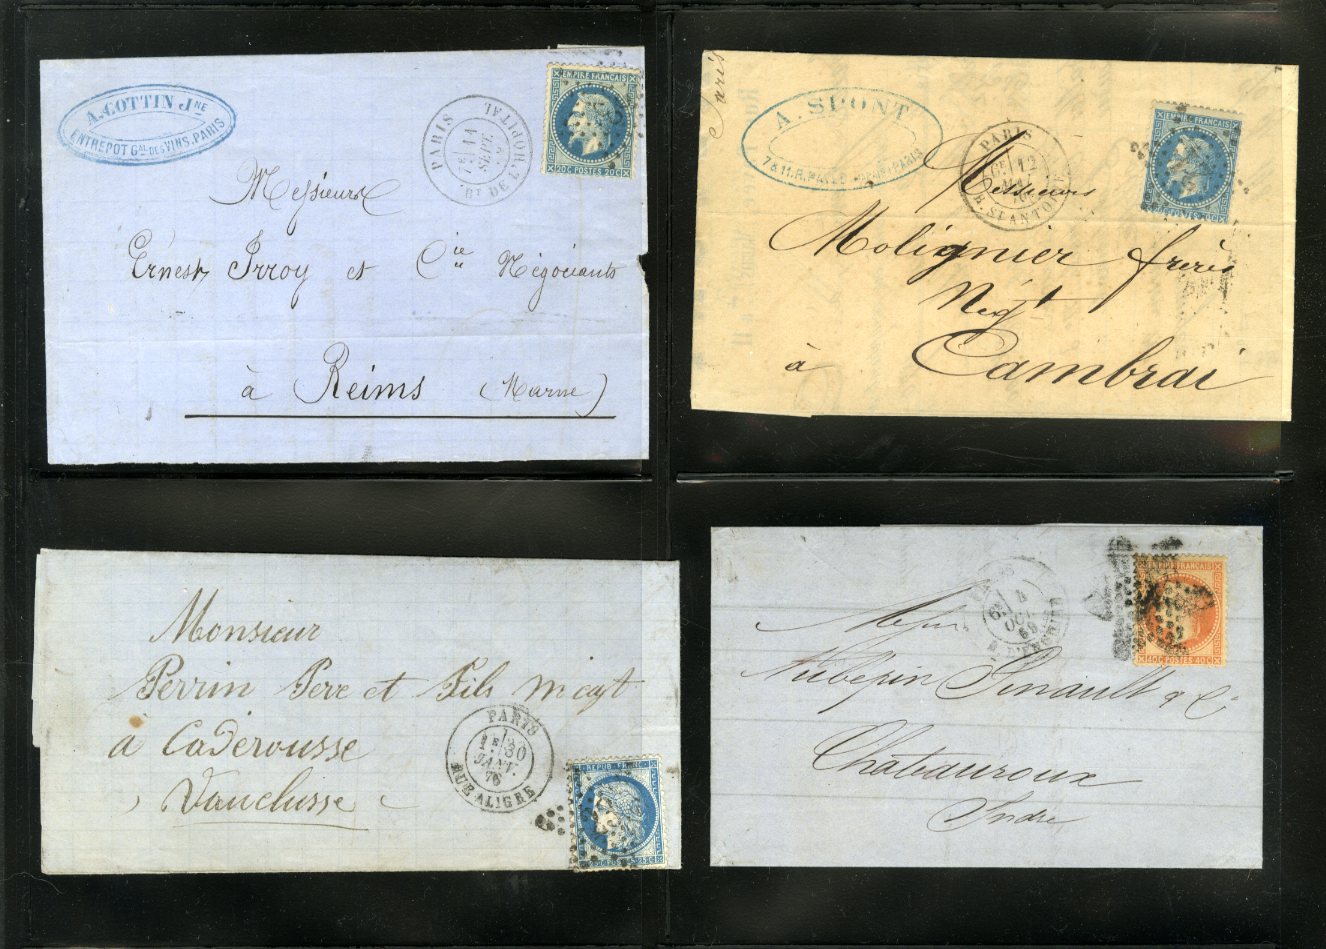 A. COTTIN JNE
ENTREPOT GAL DES VINS. PARIS
PARIS
7E 11
SEPT.
BT DE L'HOPITAL
EMPIRE FRANCAIS
20C POSTES 20C
Messieurs
Ernest Irroy et Cie Négociants
à Reims (Marne)
Paris
A. SPONT
PARIS
6E 12
EMPIRE FRANCAIS
POSTES 20C
Messieurs
Molignier frères
Négt
à Cambrai
Monsieur
Perrin Pere et Fils
à Caderousse
Vaucluse
PARIS
1E 30
JANV.
76
RUE ALIGRE
REPUB FRANC
25C POSTES 25C
6E 4
OCT
EMPIRE FRANCAIS
40C POSTES 40C
Aubepin Pinault & Cie
Chateauroux
Indre